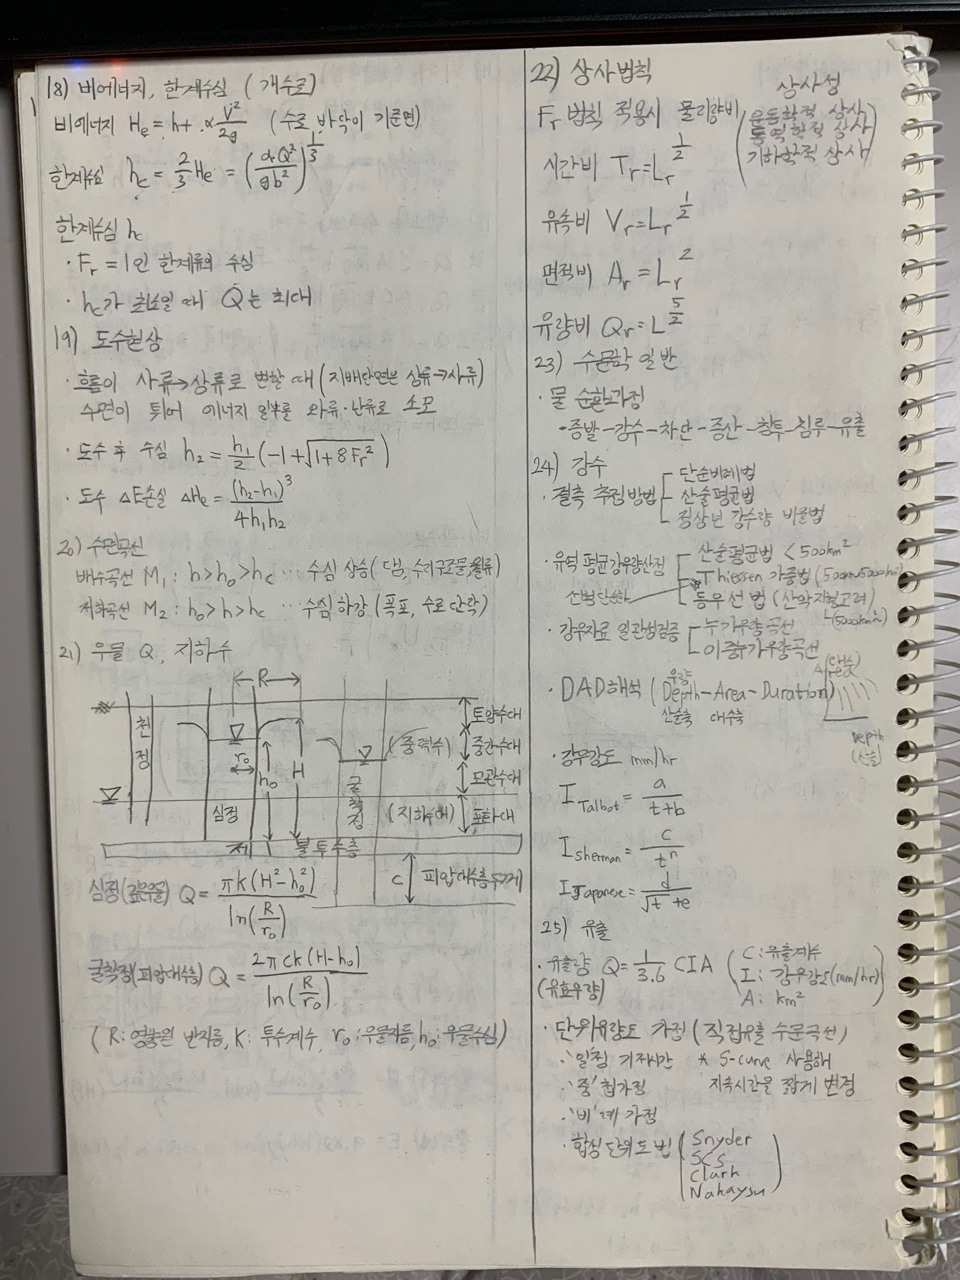 18) 비에너지, 한계수심 (개수로)
비에너지 He = h + α V²/2g (수로 바닥이 기준면)
한계수심 hc = 2/3 He = (αQ²/gb²)^1/3
한계수심 hc
· Fr = 1인 한계류의 수심
· hc가 최소일 때 Q는 최대
19) 도수현상
· 흐름이 사류→상류로 변할 때 (지배단면은 상류→사류)
수면이 튀어 에너지 일부를 와류·난류로 소모
· 도수 후 수심 h₂ = h₁/2 (-1+√(1+8Fr²))
· 도수 ΔE손실 ΔHe = (h₂-h₁)³/4h₁h₂
20) 수면곡선
배수곡선 M₁ : h>h₀>hc ··· 수심 상승 (댐, 수리구조물, 월류)
저하곡선 M₂ : h₀>h>hc ··· 수심 하강 (폭포, 수로 단락)
21) 우물 Q, 지하수
R
천정
r₀
h₀
H
심정
굴착정
(중력수)
(지하수대)
토양수대
중간수대
모관수대
포화대
제 1 불투수층
C 피압대수층 두께
심정(깊은우물) Q = πK(H²-h₀²)/ln(R/r₀)
굴착정(피압대수층) Q = 2πcK(H-h₀)/ln(R/r₀)
(R : 영향원 반지름, K : 투수계수, r₀ : 우물지름, h₀ : 우물수심)
22) 상사법칙
상사성
(운동학적 상사
동역학적 상사
기하학적 상사)
Fr 법칙 적용시 물리량비
시간비 Tr = Lr^1/2
유속비 Vr = Lr^1/2
면적비 Ar = Lr²
유량비 Qr = L^5/2
23) 수문학 일반
· 물 순환과정
· 증발-강수-차단-증산-침투-침루-유출
24) 강수
· 결측 추정방법
단순비례법
산술평균법
정상년 강수량 비율법
· 유역 평균강우량산정
산술평균법 < 500km²
Thiessen 가중법
등우선법 (산악지형고려)
(5000km²)
· 강우자료 일관성검증
누가우량곡선
이중누가우량곡선
· DAD해석 (Depth-Area-Duration)
우량
산술축 대수축
Depth
(산술)
· 강우강도 mm/hr
I Talbot = a/t+b
I sherman = c/tⁿ
I Japanese = d/√t+e
25) 유출
· 유출량 Q = 1/3.6 CIA
(유효우량)
(C : 유출계수
I : 강우강도(mm/hr)
A : km²)
· 단위유량도 가정 (직접유출 수문곡선)
· '일'정 기저시간
* S-curve 사용해
· '중'첩가정
지속시간을 짧게 변경
· '비'례 가정
· 합성단위도법
(Snyder
SCS
Clark
Nakaysu)